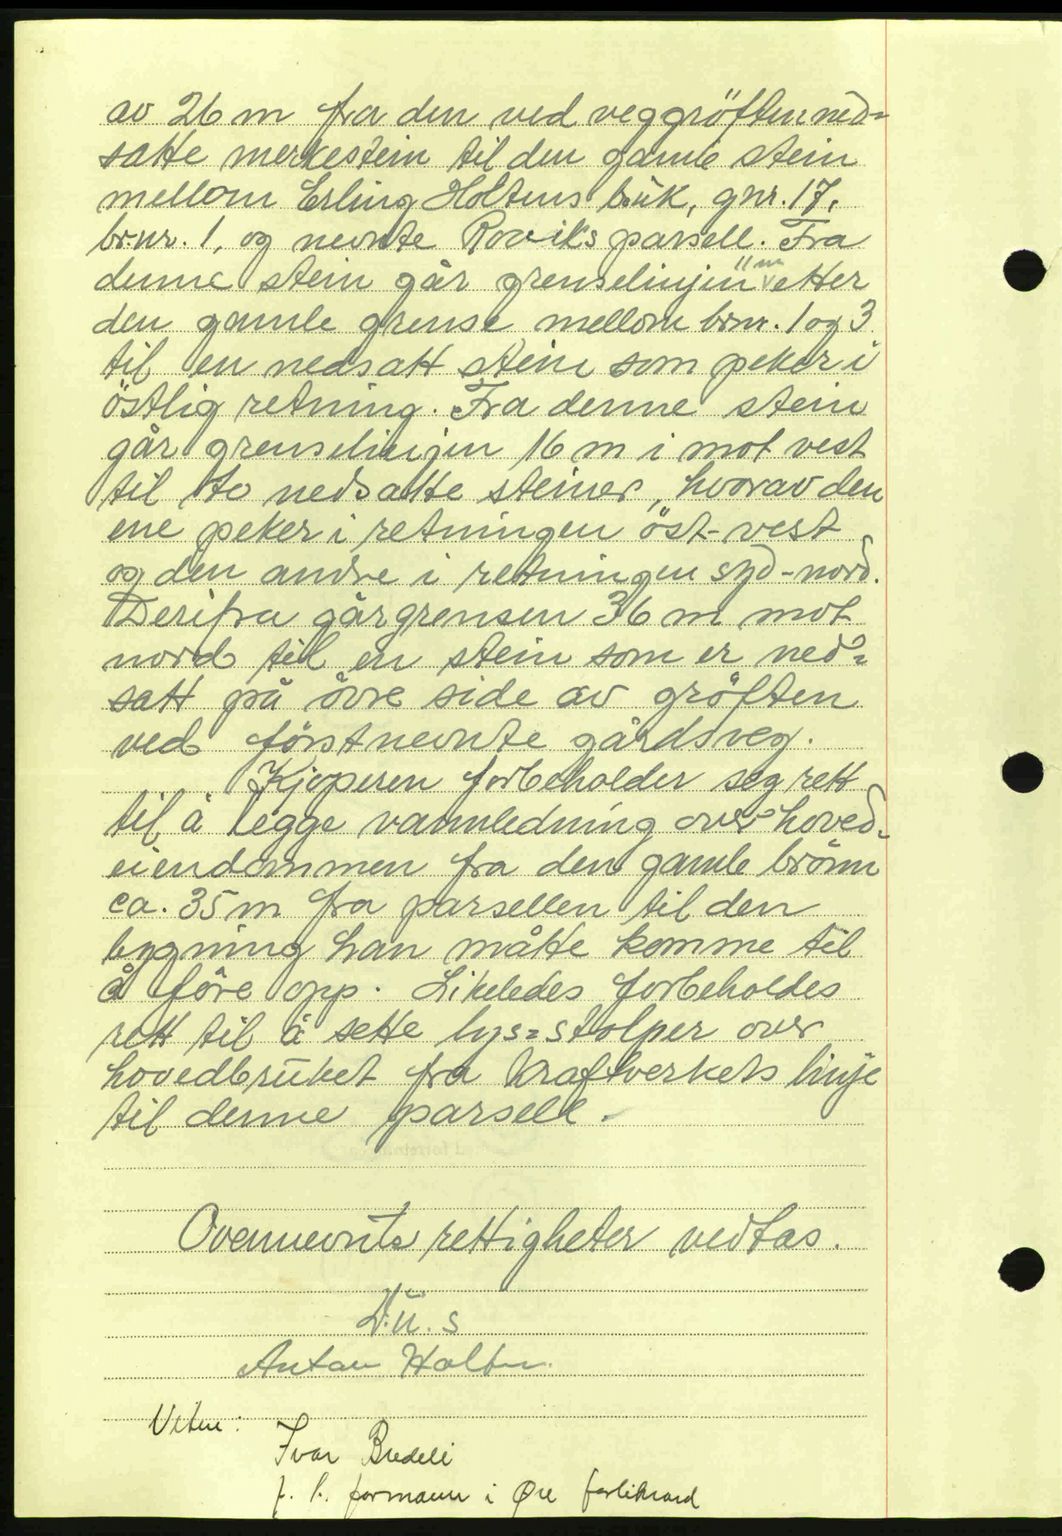 av 26 m fra den ved veggröften ned=
satte merkestein til den gamle stein
mellom Erling Holtens bruk, gnr. 17,
br.nr. 1, og nevnte Roviks parsell. Fra
denne stein går grenselinjen " m etter
den gamle grense mellom brnr. 1 og 3
til en nedsatt stein som peker i
östlig retning. Fra denne stein
går grenselinjen 16 m i mot vest
til to nedsatte steiner, hvorav den
ene peker i retningen öst-vest
og den andre i retningen syd-nord.
Derifra går grensen 36 m mot
nord til en stein som er ned=
satt på övre side av gröften
ved förstnevnte gårdsveg.
Kjøperen forbeholder seg rett
til å legge vannledning over hoved=
eiendommen fra den gamle brönn
ca. 35 m fra parsellen til den
bygning han måtte komme til
å före opp. Likeledes forbeholdes
rett til å sette lys=stolper over
hovedbruket fra kraftverkets linje
til denne parsell.
Ovennevnte rettigheter vedtas.
D.u.s
Anton Holten.
Vitne:
Ivar Bredeli
f. h. formann i Øre forliksråd